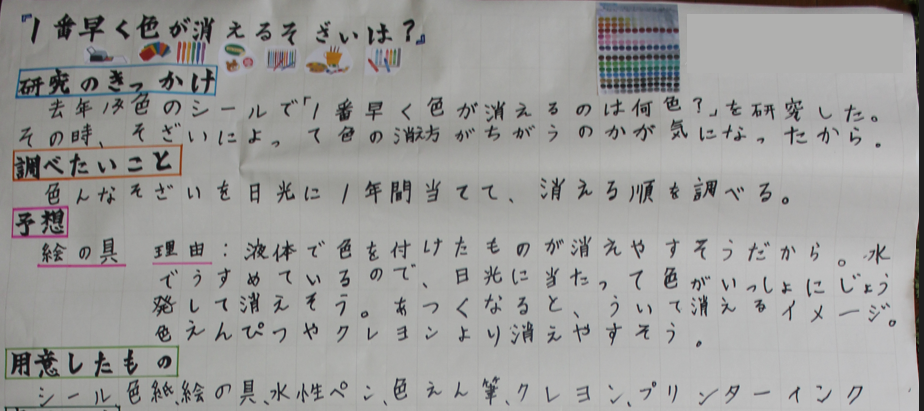 『1番早く色が消えるそざいは?』
研究のきっかけ
去年は色のシールで「1番早く色が消えるのは何色?」を研究した。
その時、そざいによって色の消え方がちがうのかが気になったから。
調べたいこと
色んなそざいを日光に1年間当てて、消える順を調べる。
予想
絵の具 理由:液体で色を付けたものが消えやすそうだから。水
でうすめているので、日光に当たって色がいっしょにじょう
発して消えそう。あつくなると、ういて消えるイメージ。
色えんぴつやクレヨンより消えやすそう。
用意したもの
シール、色紙、絵の具、水性ペン、色えん筆、クレヨン、プリンターインク